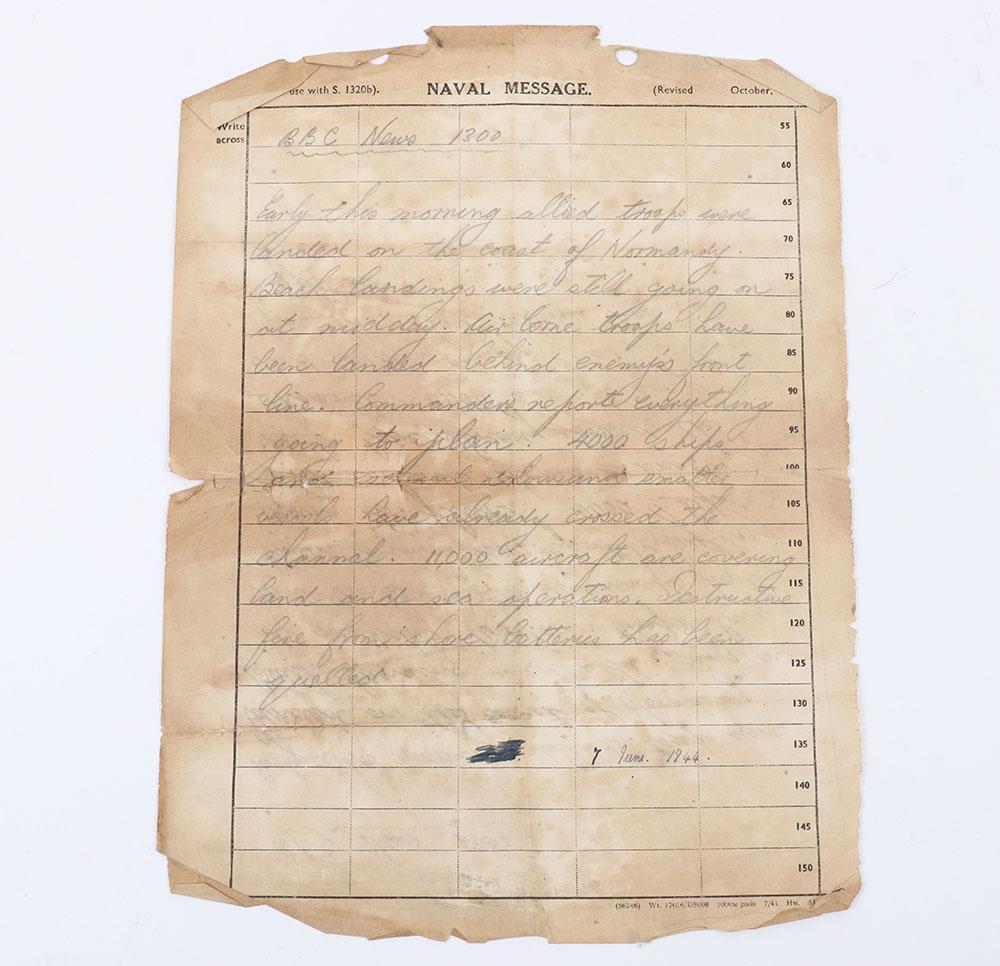 use with S. 1320b). NAVAL MESSAGE. (Revised October,
Write across
BBC News 1300
55
60
Early this morning allied troops were 65
landed on the coast of Normandy. 70
Beach landings were still going on 75
at midday. Air borne troops have 80
been landed behind enemy's front 85
line. Commanders reports everything 90
going to plan. 4000 ships 95
and smaller 100
have already crossed the 105
channel. 11,000 aircraft are covering 110
land and sea operations. Destructive 115
fire from shore batteries has been 120
quelled 125
130
7 June. 1944. 135
140
145
150
(56246) Wt. 1000M pads 7/41 Hw.